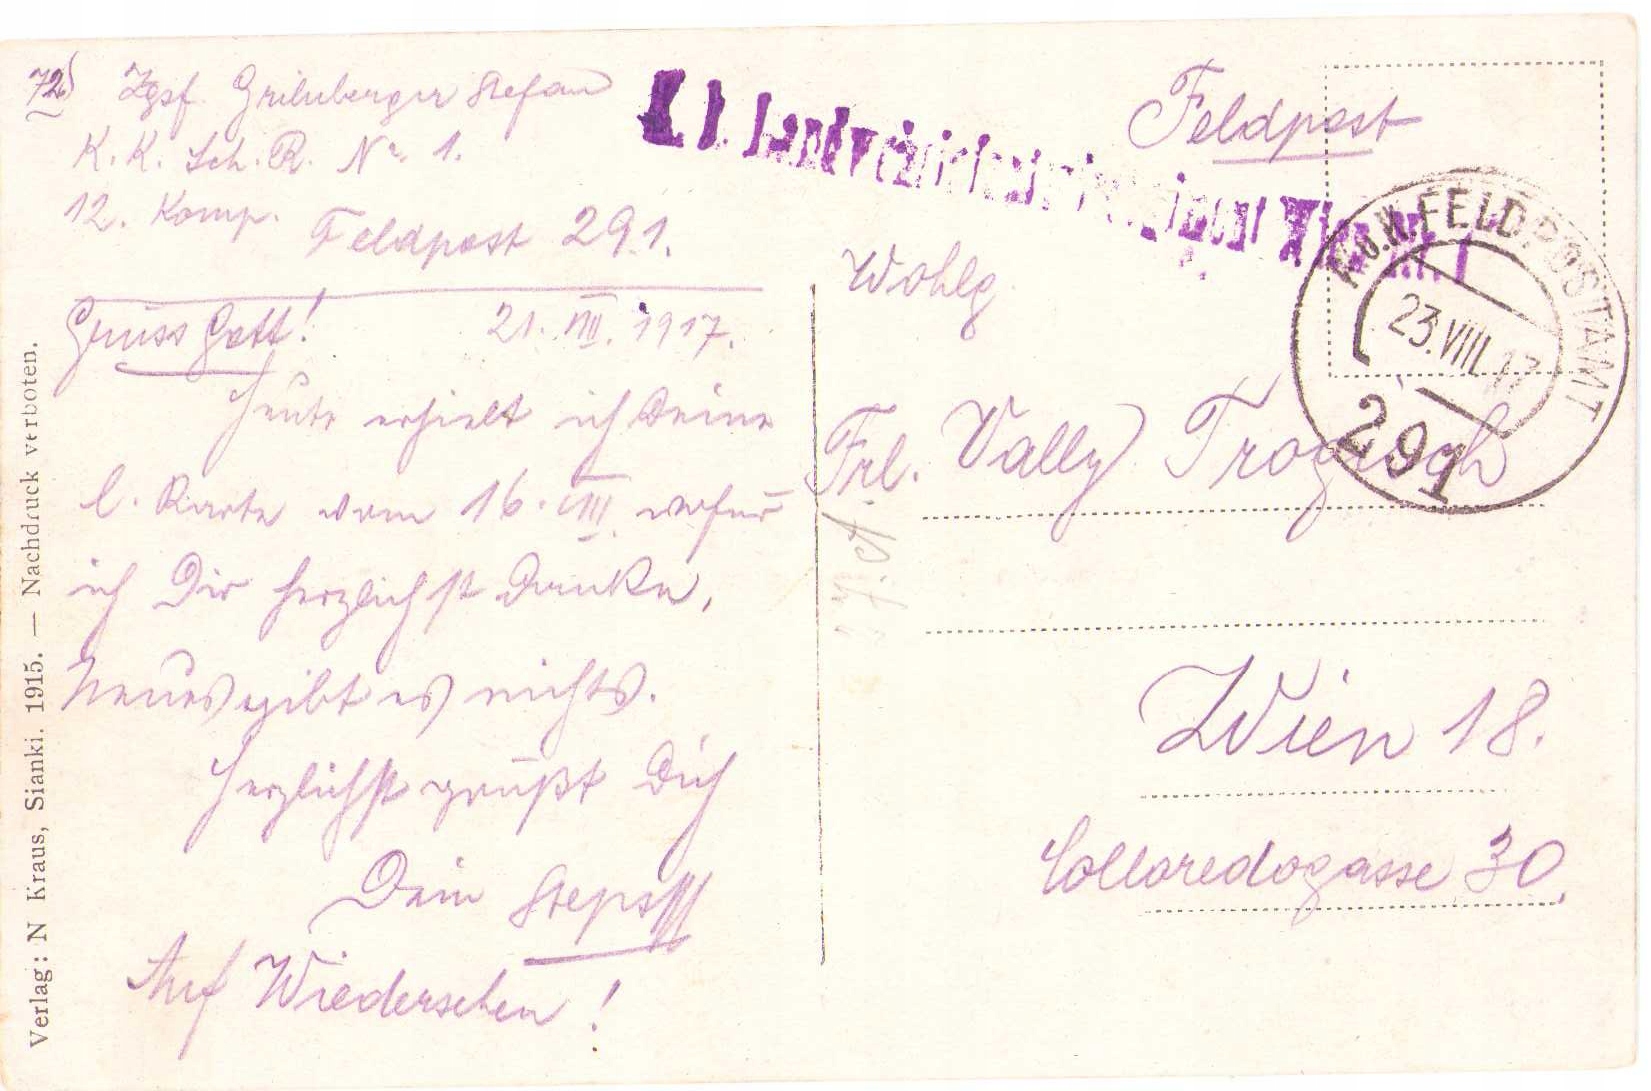 72)
Zgsf. Grünberger Stefan
K. K. Sch. R. Nr. 1.
12. Komp.
Feldpost 291.
Gruss Gott!
21. VIII. 1917.
Heute erhielt ich Deine
l. Karte vom 16. VIII. wofür
ich Dir herzlichst danke,
Neues gibt es nichts.
Herzlichst grüßt Dich
Dein
Auf Wiedersehen!
Verlag: N Kraus, Sianki. 1915. — Nachdruck verboten.
Feldpost
K.u.K. FELDPOSTAMT
23.VIII.17
291
Wohlg.
Frl. Vally
Wien 18.
Colloredogasse 30.